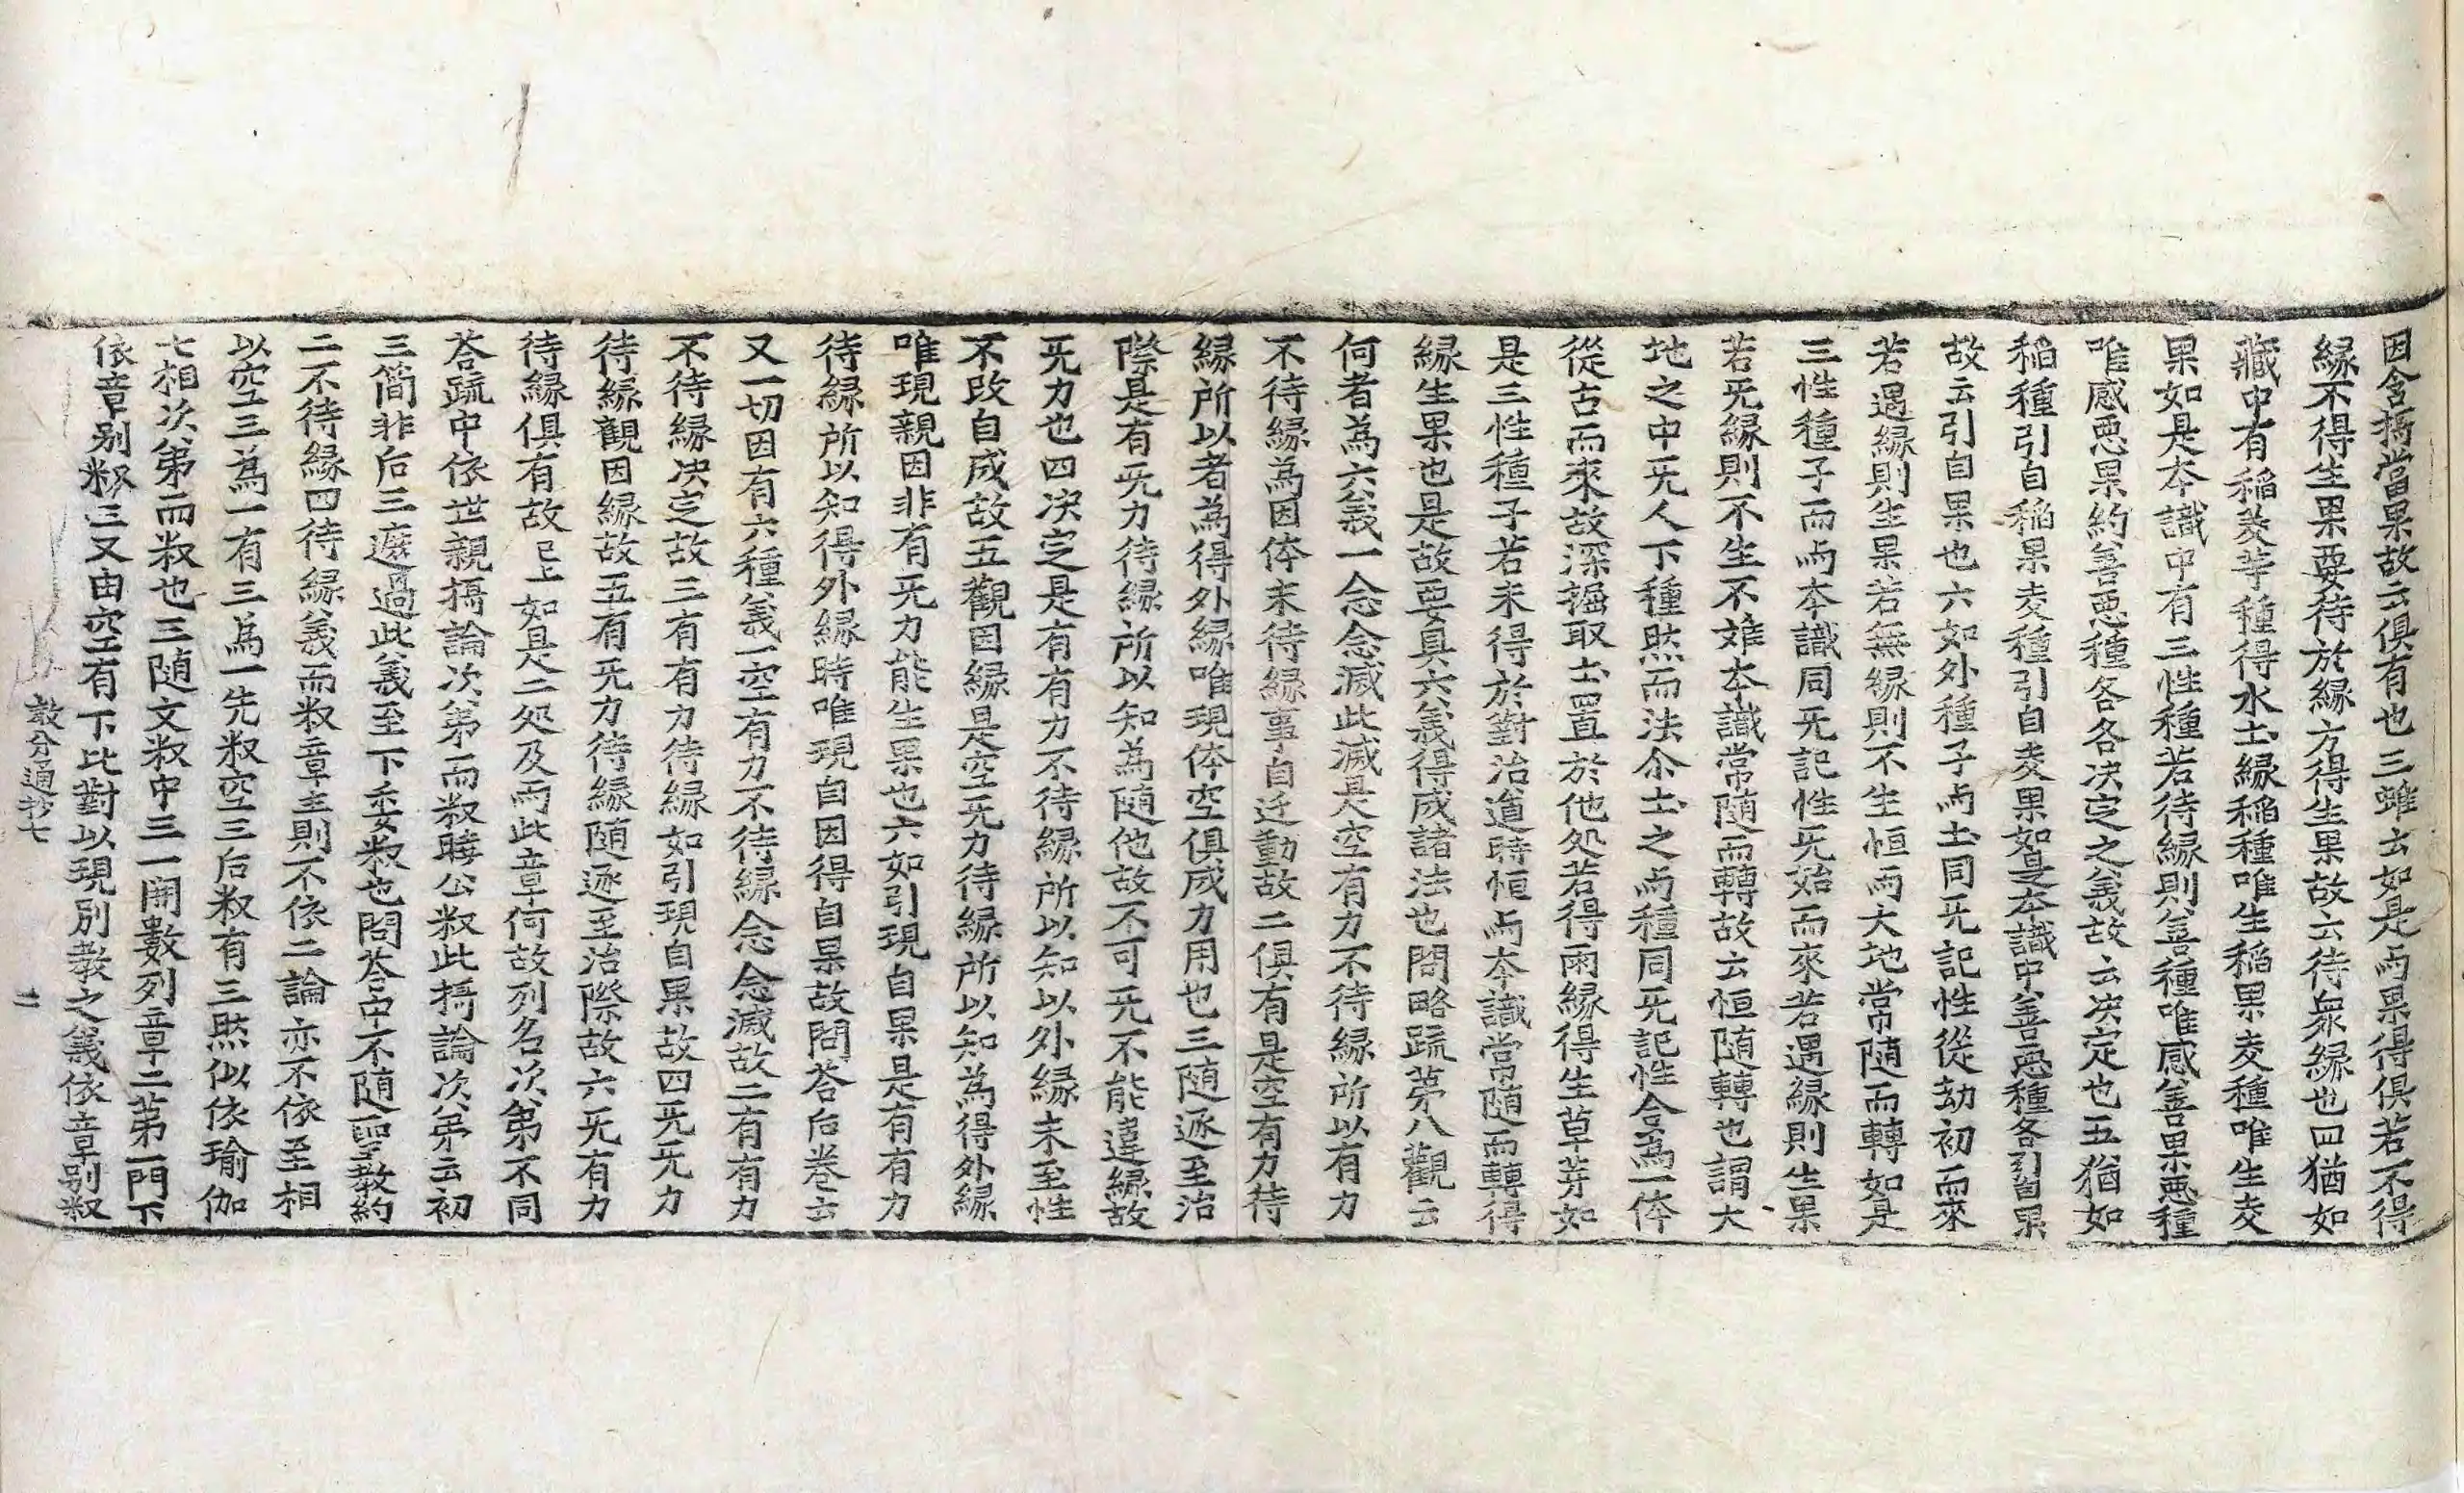 因含攝當果故云俱有也三雖云如是両果得俱若不得
縁不得生果要待於縁方得生果故云待衆縁也四猶如
藏中有稲麦䓁種得水土縁稲種唯生稲果麦種唯生麦
果如是夲識中有三性種若待縁則善種唯感善果惡種
唯感惡果約善惡種各各决㝎之義故云决定也五猶如
稲種引自稲果麦種引自麦果如是夲識中善惡種各引自果
故云引自果也六如外種子与土同旡記性從劫初而來
若遇縁則生果若無縁則不生恒与大地常随而轉如是
三性種子而与夲識同旡記性旡始而來若遇縁則生果
若旡縁則不生不離夲識常随而轉故云恒随轉也謂大
地之中旡人下種然而法尒土之与種同旡記性合為一体
從古而來故深掘取土置於他処若得雨縁得生草芽如
是三性種子若未得於對治道時恒与夲識常随而轉得
縁生果也是故要具六義得成諸法也問略䟽苐八觀云
何者為六義一念念滅此滅是空有力不待縁所以有力
不待縁為因体未待縁事自迁動故二俱有是空有力待
縁所以者為得外縁唯現体空俱成力用也三随逐至治
際是有旡力待縁所以知為随他故不可旡不能違縁故
旡力也四决㝎是有有力不待縁所以知以外縁未至性
不改自成故五觀因縁是空旡力待縁所以知為得外縁
唯現親因非有旡力能生果也六如引現自果是有有力
待縁所以知得外縁時唯現自因得自果故問荅后卷云
又一切因有六種義一空有力不待縁念念滅故二有有力
不待縁决㝎故三有有力待縁如引現自果故四旡旡力
待縁觀因縁故五有旡力待縁随逐至治際故六旡有力
待縁俱有故已上如是二処及与此章何故列名次第不同
荅䟽中依世親攝論次第而㪽曉公㪽此攝論次第云初
三簡非后三遮過此義至下委㪽也問荅中不随聖教約
二不待縁四待縁義而㪽章主則不依二論亦不依至相
以空三為一有三為一先㪽空三后㪽有三然似依瑜伽
七相次第而㪽也三随文㪽中三一開數列章二苐一門下
依章别㪽三又由空有下比對以現別教之義依章别㪽
教分通抄七
二